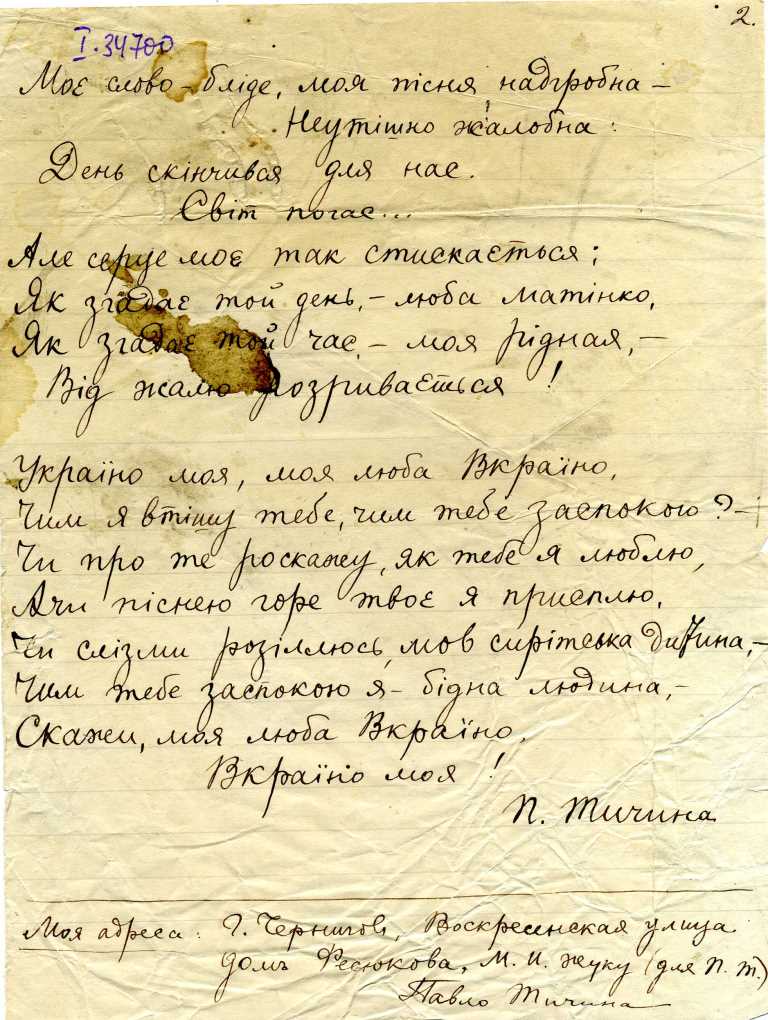 2.
I. 34700
Моє слово – бліде, моя пісня надгробна –
Неутішно жалобна:
День скінчився для нас.
Світ погас...
Але серце моє так стискається;
Як згадає той день, – люба матінко,
Як згадає той час, – моя рідная, –
Від жалю розривається!
Україно моя, моя люба Вкраїно,
Чим я втішу тебе, чим тебе заспокою? –
Чи про те роскажу, як тебе я люблю,
А чи піснею горе твоє я присплю,
Чи слізми розіллюсь, мов сирітська дитина, –
Чим тебе заспокою я – бідна людина, –
Скажи, моя люба Вкраїно,
Вкраїно моя!
П. Тичина
Моя адреса: Г. Чернигов, Воскресенская улица
домъ Фесюкова, М. И. Жуку (для П. Т.)
Павло Тичина